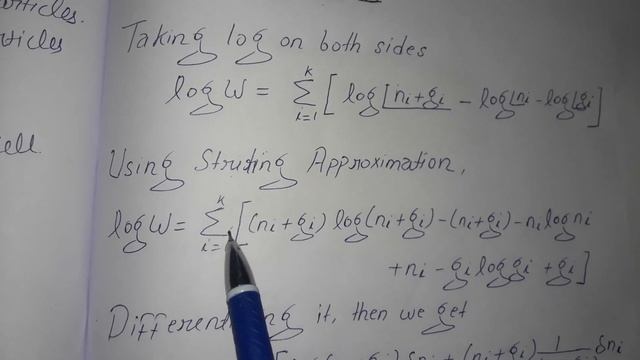 rticles.
rticles
Taking log on both sides
log W = Σ_{i=1}^{k} [ log⌊n_i+g_i − log⌊n_i − log⌊g_i ]
cell
Using Struting Approximation,
log W = Σ_{i=}^{k} [ (n_i+g_i) log(n_i+g_i) − (n_i+g_i) − n_i log n_i
+ n_i − g_i log g_i + g_i ]
Differen ng it, then we get